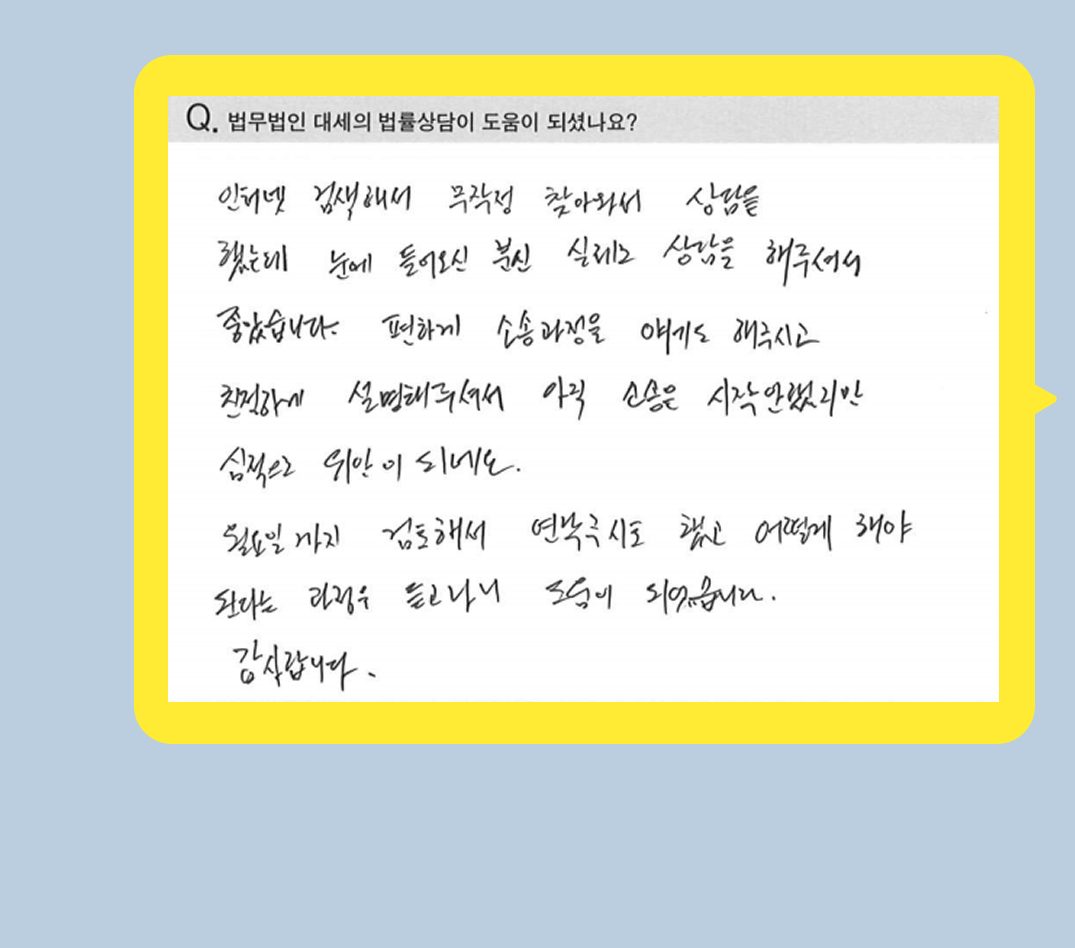 Q. 법무법인 대세의 법률상담이 도움이 되셨나요?
인터넷 검색해서 무작정 찾아와서 상담을
했는데 눈에 들어오신 분신 실제로 상담을 해주셔서
좋았습니다. 편하게 소송과정을 얘기도 해주시고
친절하게 설명해주셔서 아직 소송은 시작안했지만
심적으로 위안이 되네요.
월요일까지 검토해서 연락주시도 했고 어떻게 해야
된다는 과정을 듣고나니 도움이 되었습니다.
감사합니다.